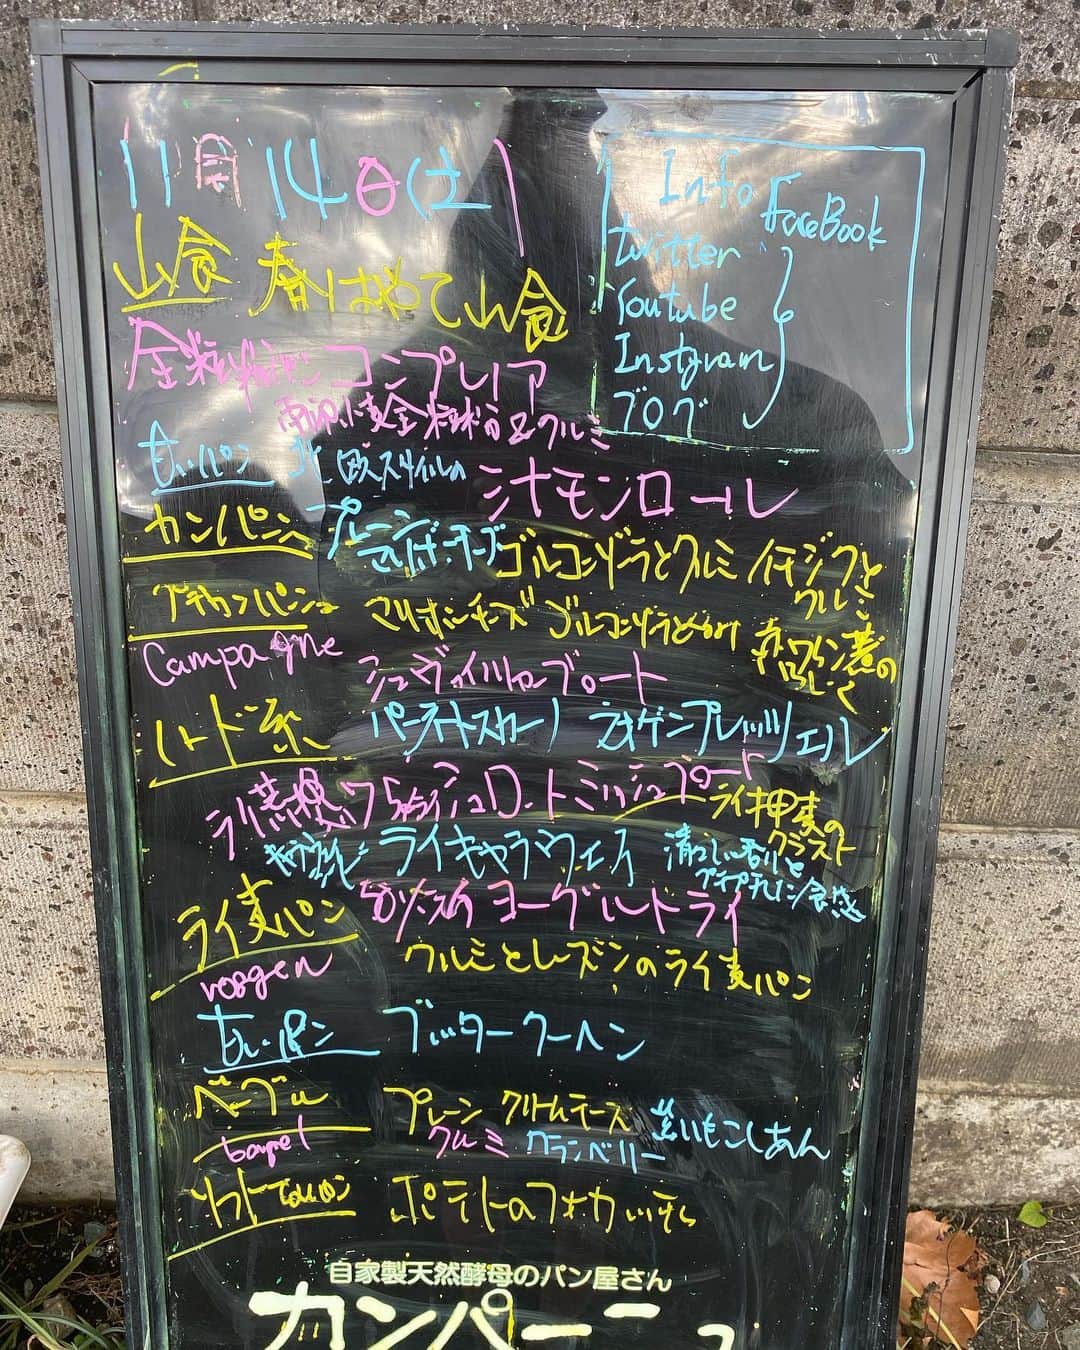 11月14日(土)
Info FaceBook
twitter
Youtube
Instgram
ブログ
山食 春はやて山食
全粒粉パン コンプレノア
南部小麦全粒粉&クルミ
甘いパン 北欧スタイルの シナモンロール
カンパーニュ プレーン ゴルゴンゾーラとクルミ イチジクとクルミ
プチカンパーニュ マリボーチーズ ゴルゴンゾーラとくるみ 赤ワイン煮の
Campagne
シュヴァイツァーブロート
ハード系 ラオゲンプレッツェル
ミッシュブロート
ライ押麦のクラスト
ライキャラウェイ 清々しい香りと
プチプチ
ライ麦パン ヨーグルトライ
roggen
クルミとレーズンのライ麦パン
甘いパン ブッタークーヘン
ベーグル プレーン クリームチーズ 紫いもこしあん
bagel クルミ クランベリー
ソフト ポテトのフォカッチャ
自家製天然酵母のパン屋さん
カンパーニュ